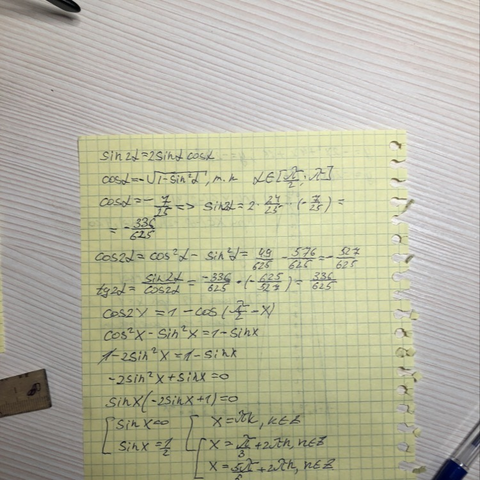 sin2α=2sinα cosα
cosα=-√1-sin²α, т.к α∈[π/2; π]
cosα=-7/25 => sin2α=2·24/25·(-7/25)=
=-336/625
cos2α=cos²α-sin²α=49/625-576/625=-527/625
tg2α=sin2α/cos2α=-336/625·(-625/527)=336/625
cos2X=1-cos(π/2-X)
cos²X-sin²X=1-sinX
1-2sin²X=1-sinX
-2sin²X+sinX=0
sinX(-2sinX+1)=0
[sinX=0 [X=πk, n∈Z
sinX=1/2 [X=π/3+2πn, n∈Z
X=5π/6+2πn, n∈Z